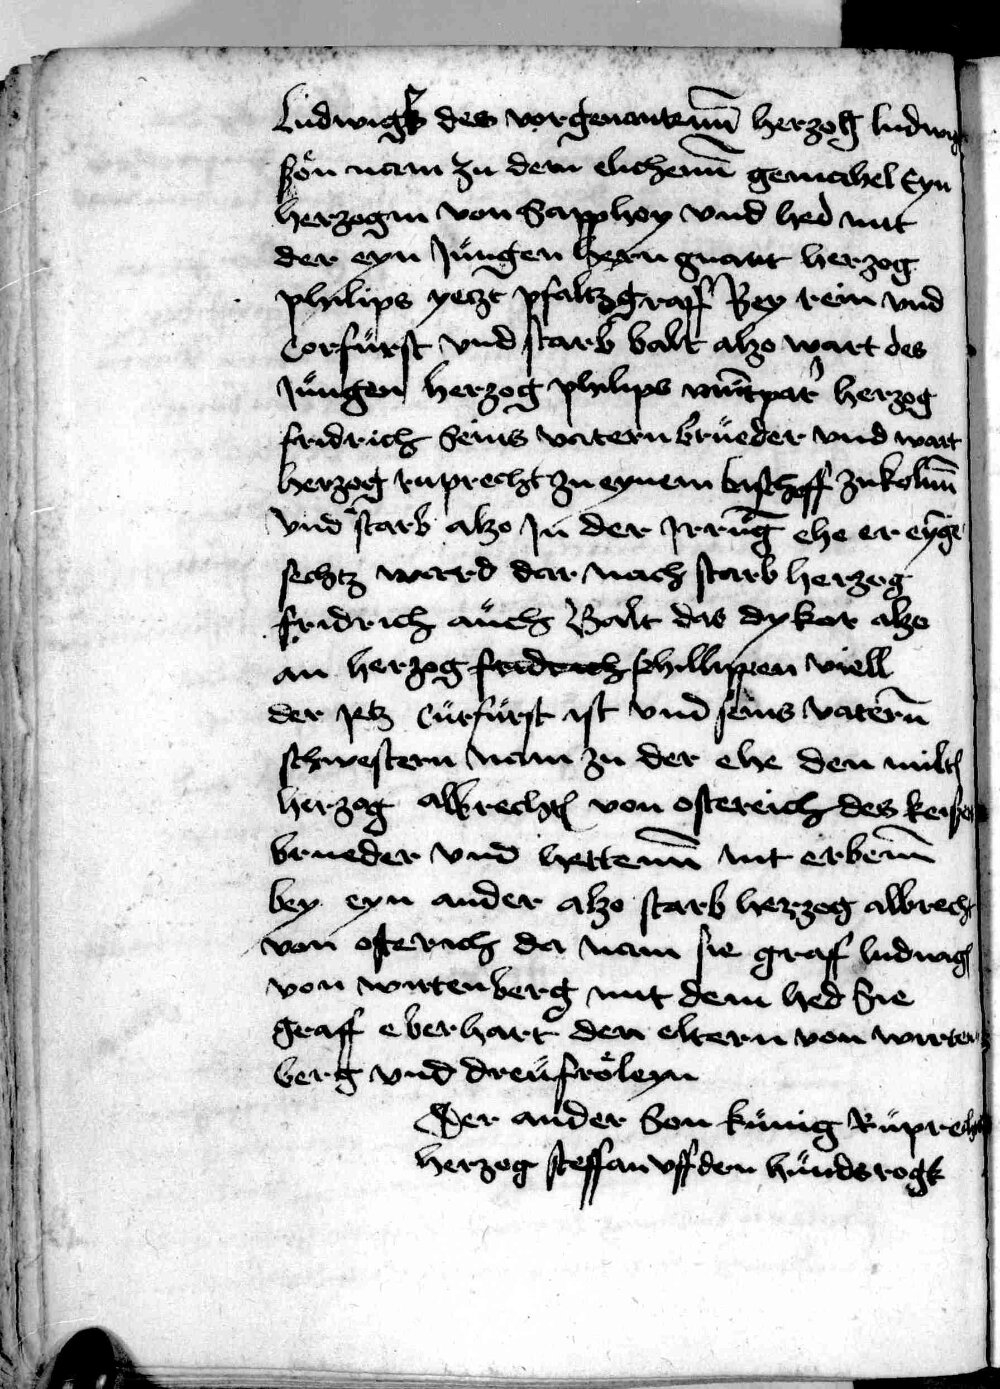 Ludwigk des vorgenantenn herzog ludwig
sön nam zu dem elichenn gemahel Eyn
herzogin von Sapphoy vnd hed mit
der eyn Jüngen hern gnant herzog
philips yeczt pfaltzgraff Bey rein vnd
Corfürst vnd starb balt alzo wart des
Jüngen herzog philips müntpar herzog
fridrich Seins vatern brüeder vnd wart
herzog ruprecht zu eynem bischoff zu kolnn
vnd starb alzo Jn der Jrrung ehe er eynge
sechtz ward dar nach starb herzog
fridrich aüch Balt das dy kor alzo
an herzog fridrich phillippen viell
der Jetz Cürfürst ist vnd seins vatern
schwestern nam zu der ehe den milt
herzog albrecht von ostereich des keysers
brueder vnd hettenn nit erbenn
bey eyn ander alzo starb herzog albrecht
von osterich da nam sie graff ludwig
von wirtenberg mit dem hed Sie
graff eberhart den eltern von wirten
berg vnd dreü fröleyn
Der ander Son künig Rüprecht
herzog steffan vff den hündsrogk